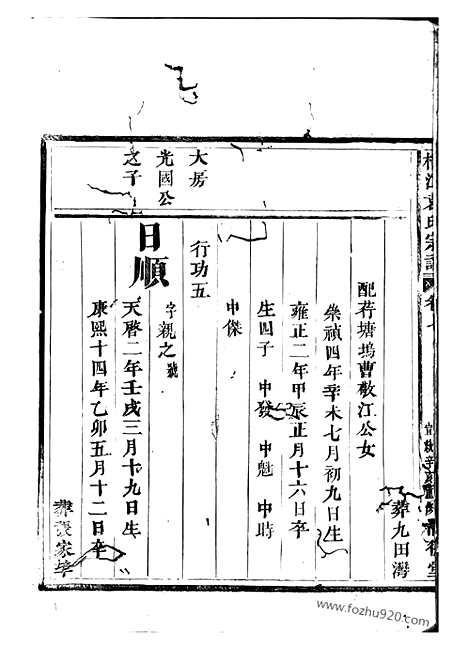 袁氏宗譜 卷七
宣統辛亥重修
葬九田灣
配荐塘塢曹敬江公女
崇禎四年辛未七月初九日生
雍正二年甲辰正月十六日卒
生四子 申發 申魁 申時
申傑
大房
光國公
之子
日順
行功五
字親之號
天啓二年壬戌三月十九日生
康熙十四年乙卯五月十二日卒
葬張家塝
www.fozhu920.com